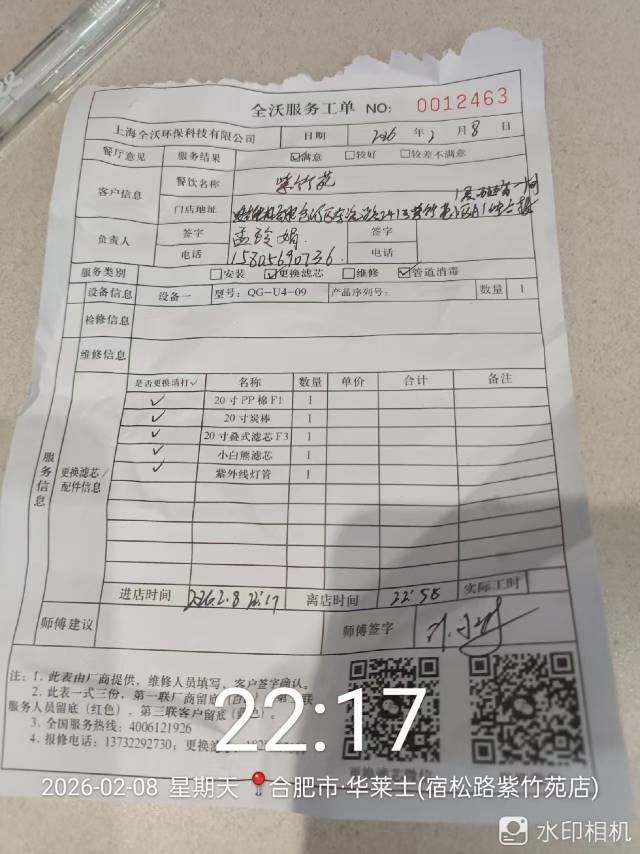 全沃服务工单 NO: 0012463
上海全沃环保科技有限公司 日期 2026 年 2 月 8 日
餐厅意见 服务结果 ☑满意 □较好 □较差不满意
客户信息 餐饮名称 紫竹苑
门店地址
负责人 签字 孟玲娟 签字
电话 15805690736 电话
服务类别 □安装 ☑更换滤芯 □维修 ☑管道消毒
设备信息 设备一 型号：QG-U4-09 产品序列号： 数量 1
检修信息
维修信息
服务信息
更换滤芯/配件信息
是否更换请打✓ 名称 数量 单价 合计 备注
✓ 20寸PP棉F1 1
✓ 20寸炭棒 1
✓ 20寸叠式滤芯F3 1
✓ 小白熊滤芯 1
✓ 紫外线灯管 1
进店时间 2026.2.8 22:17 离店时间 22:58 实际工时
师傅建议 师傅签字
注：1. 此表由厂商提供，维修人员填写，客户签字确认。
2. 此表一式三份，第一联厂商留底
服务人员留底（红色），第三联客户留底
3. 全国服务热线：4006121926
4. 报修电话：13732292730；更换滤芯
22:17
2026-02-08 星期天 合肥市·华莱士(宿松路紫竹苑店)
水印相机